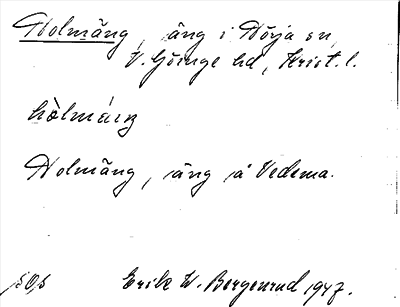 Holmäng, äng i Nörja sn,
V. Göinge hd, Krist. l.
hòlmáeŋ
Holmäng, äng å Vedema.
Erik W. Borgenrud 1947.